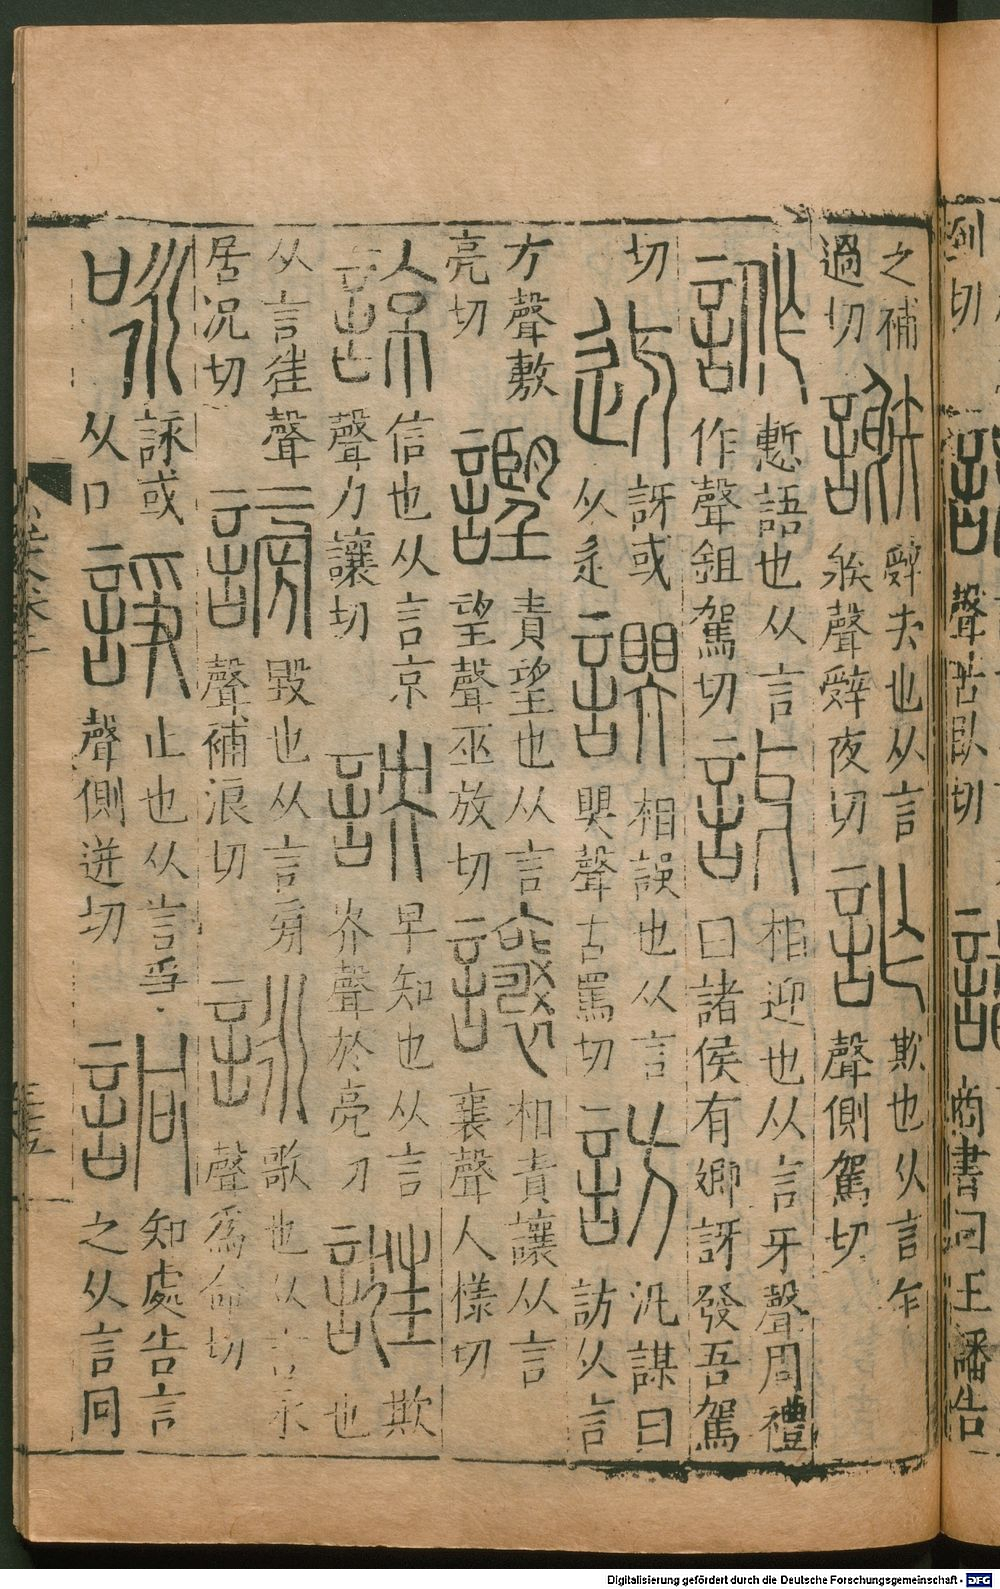 劍切
聲苦臥切
商書曰王譒告
之補過切 謝 辤去也从言䠶聲辤夜切 詐 欺也从言乍聲側駕切
𧨿 慙語也从言作聲鉏駕切 訝 相迎也从言牙聲周禮曰諸侯有卿訝發吾駕
切 迓 訝或从辵 𧮈 相誤也从言䀠聲古罵切 訪 汎謀曰訪从言
方聲敷亮切 謹 責望也从言望聲巫放切 讓 相責讓从言襄聲人樣切
諒 信也从言京聲力讓切 詇 早知也从言央聲於亮刀 誑 欺也
从言狂聲居况切 謗 毀也从言旁聲補浪切 詠 歌也从言永聲爲命切
咏 詠或从口 諍 止也从言爭聲側迸切 詗 知處告言之从言同